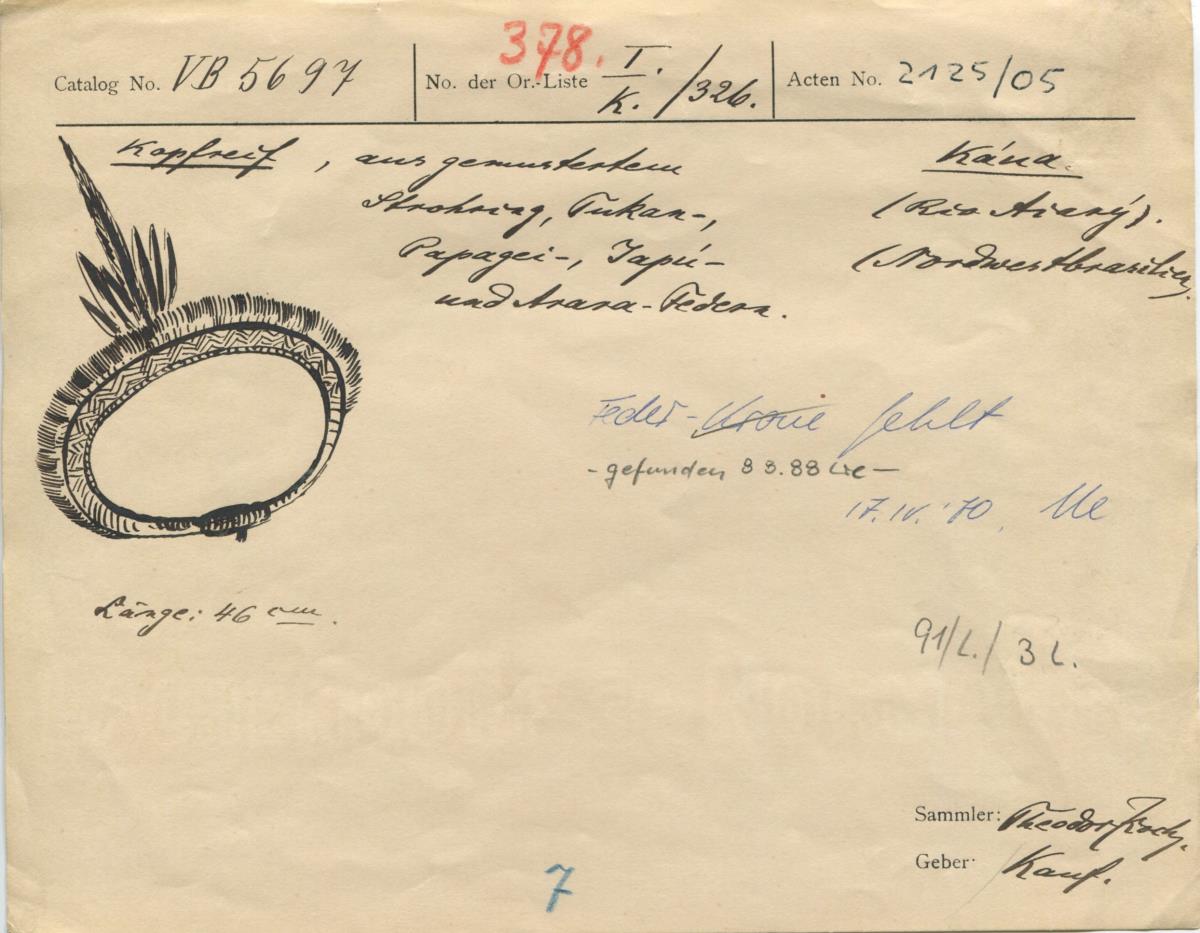 378.
Catalog No. VB 5697 No. der Or.-Liste T./K. /326. Acten No. 2125/05
Kopfreif, aus gemustertem Káua.
Strohring, Tukan-, (Rio Aiarý).
Papagei-, Japú- (Nordwestbrasilien).
und Arara-Federn.
Feder-Krone fehlt
- gefunden 8 3.88 –
17.IV.'70.
Länge: 46 cm.
91/L./3 L.
Sammler: Theodor Koch.
Geber: Kauf.
7